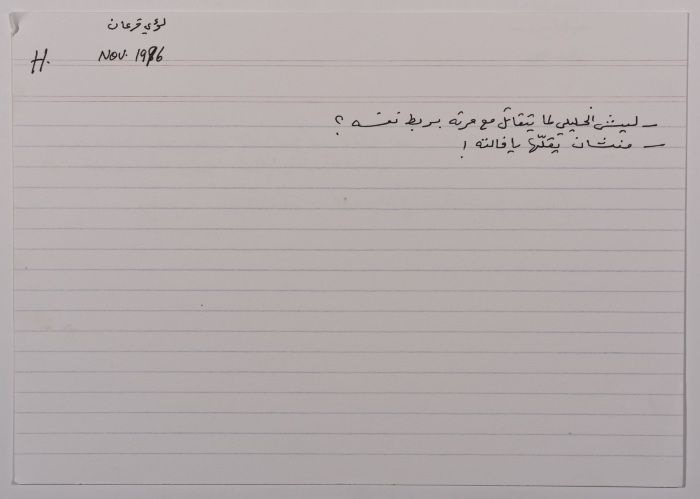 لؤي قرعان
H.
NOV. 1986
– ليش الخليلي لما يتقاتل مع مرته بربط نفسه ؟
– منشان يقلّها يا فالته !